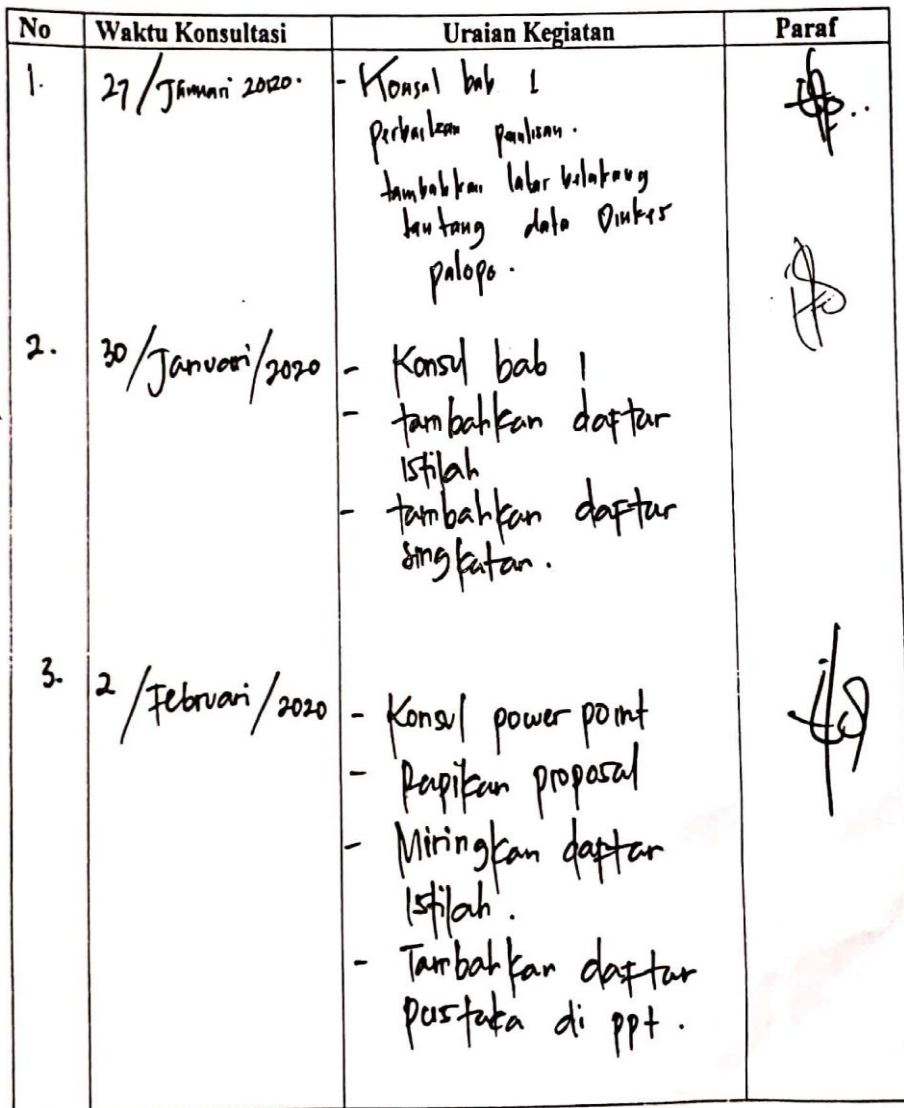 No Waktu Konsultasi Uraian Kegiatan Paraf
1. 27/Januari 2020. - Konsul bab 1
perbaikan penulisan.
tambahkan latar belakang
tentang data Dinkes
palopo.
2. 30/Januari/2020 - Konsul bab 1
- tambahkan daftar
istilah
- tambahkan daftar
singkatan.
3. 2/Februari/2020 - Konsul power point
- Rapikan proposal
- Miringkan daftar
istilah.
- Tambahkan daftar
pustaka di ppt.